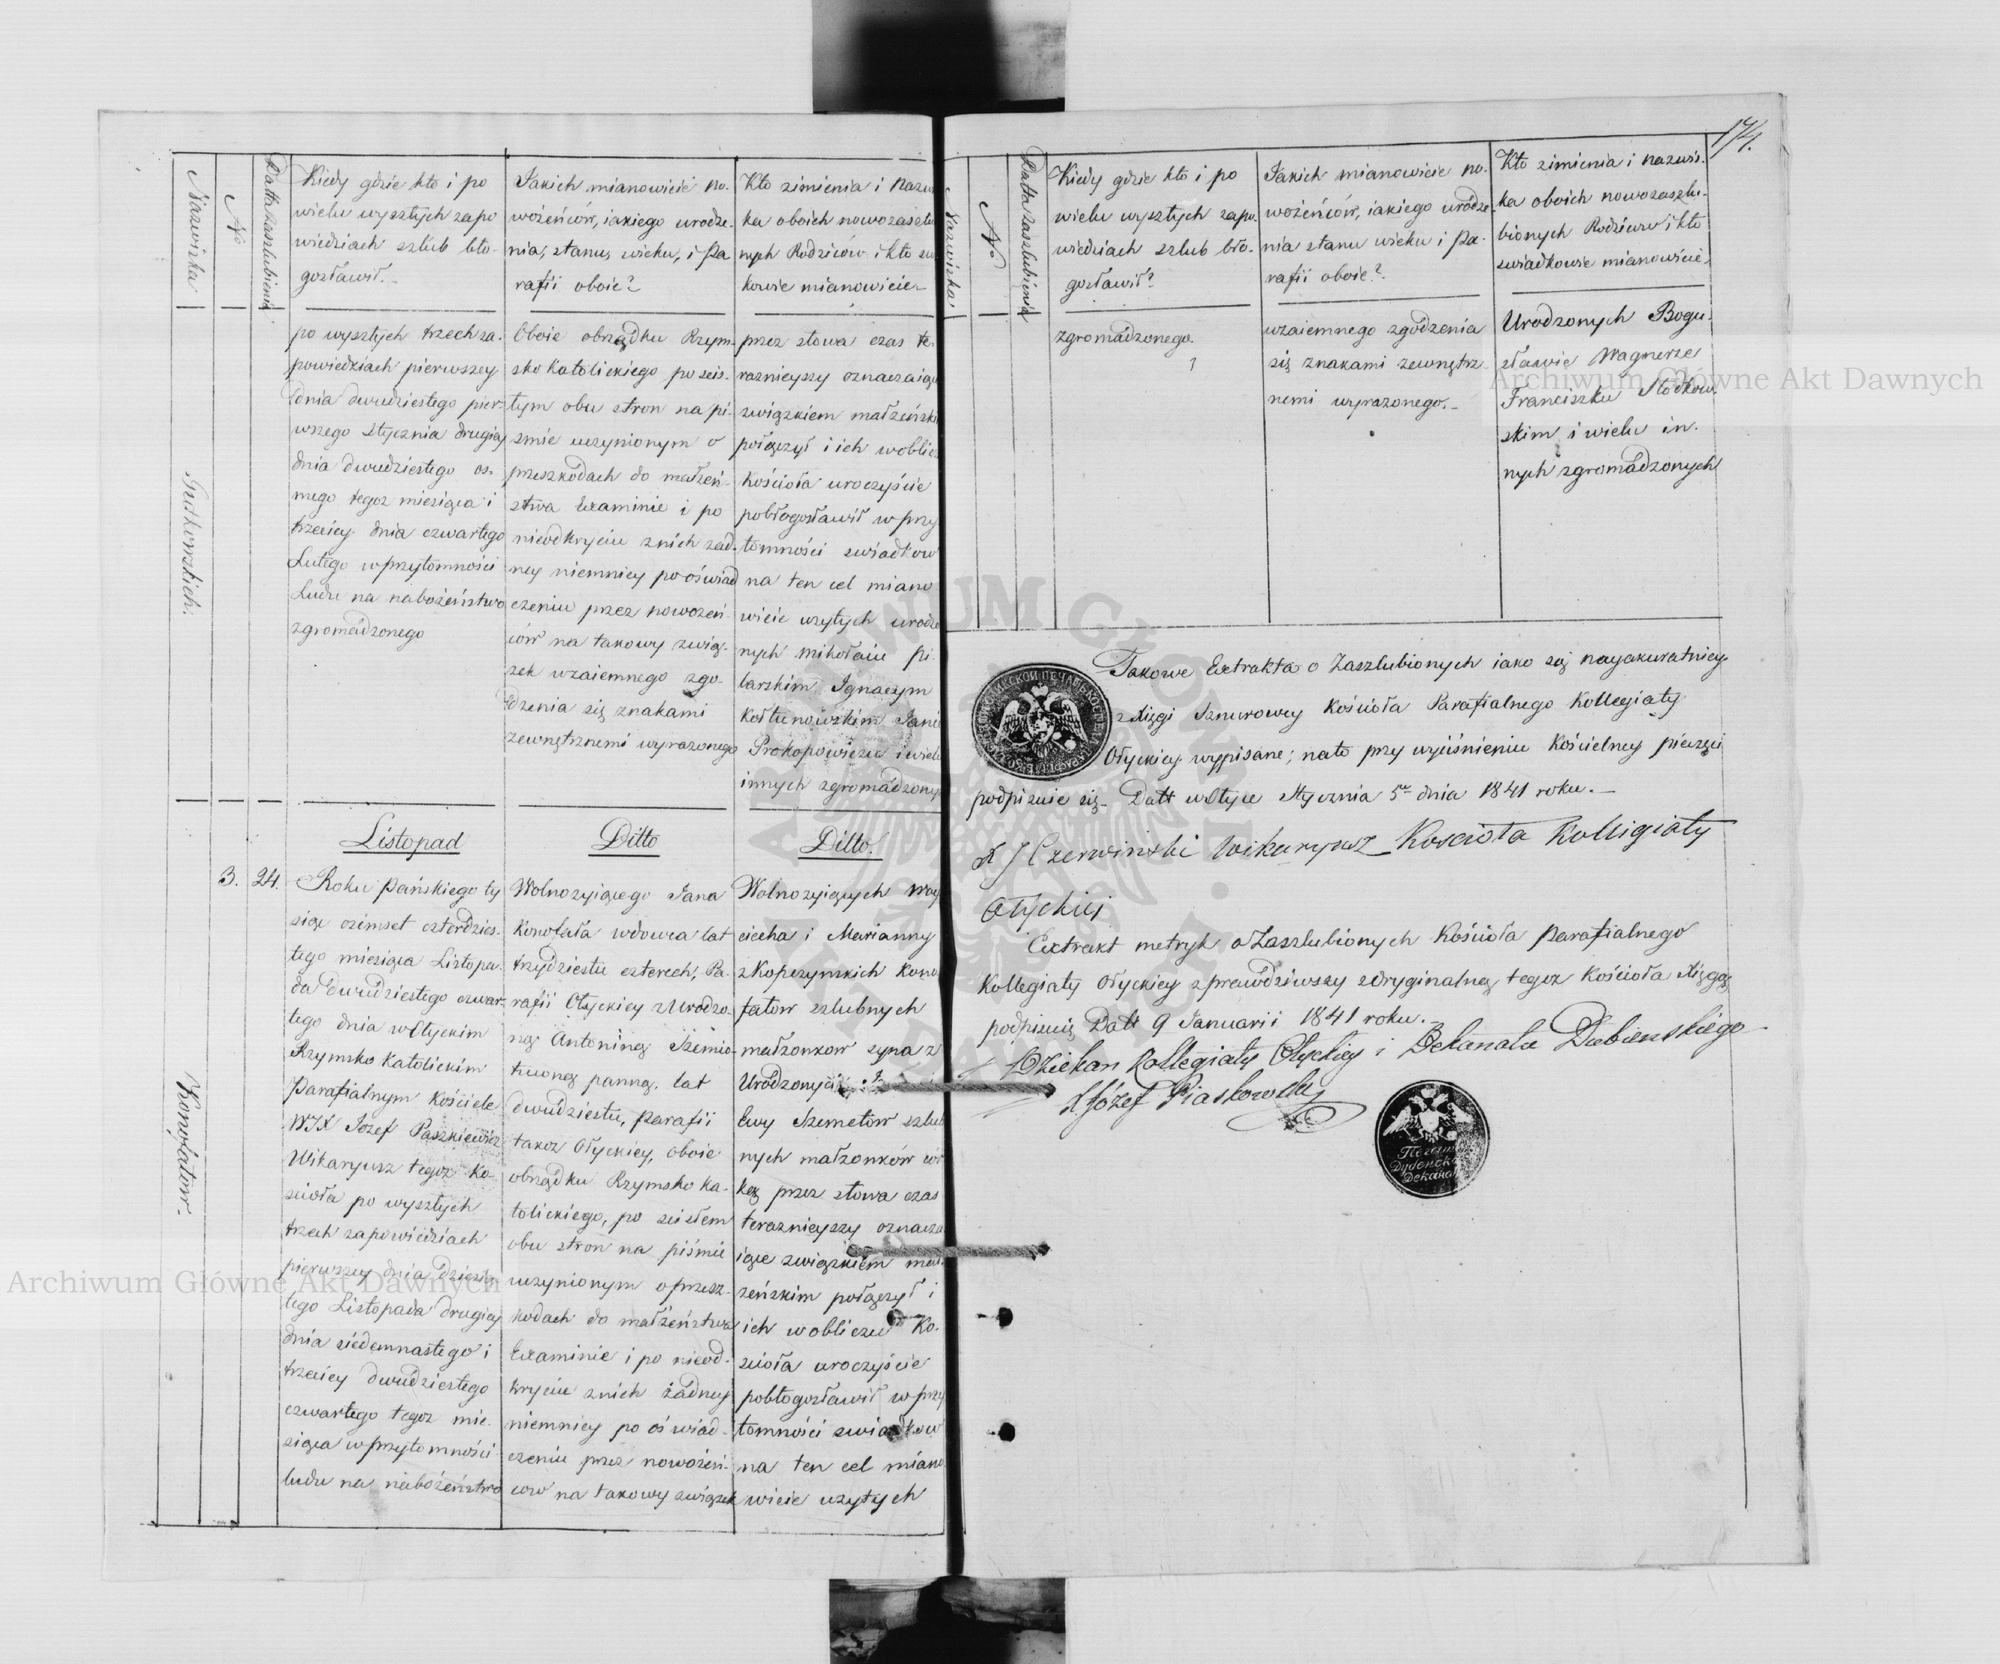 Nazwiska
No
Datta zaszlubienia
Kiedy gdzie kto i po
wielu wyszłych zapo
wiedziach szlub bło-
gosławił.-
Jakich mianowicie no-
wożeńców, iakiego urodze-
nia, stanu, wieku, i Pa
rafii oboie?
Kto zimienia i nazwi
ka oboich nowozaszlu
nych Rodziców i kto sw
kowie mianowicie-
po wyszłych trzech za-
powiedziach pierwszey
dnia dwudziestego pier-
wszego Stycznia drugiey
dnia dwudziestego os-
mego tegoz miesiąca i
trzeciey dnia czwartego
Lutego w przytomności
Ludu na nabożeństwo
zgromadzonego
Oboie obrządku Rzym-
sko katolickiego po scis-
łym obu stron na pi-
śmie uczynionym o
przeszkodach do małżeń-
stwa Examinie i po
nieodkryciu znich żad-
ney niemniey po oświad
czeniu przez nowożeń-
ców na takowy zwią-
zek wzaiemnego zgo-
dzenia się znakami
zewnętrznemi wyrazonego
przez słowa czas te-
raznieyszy oznaczaiąc
związkiem małżeńsk
połączył i ich w oblicz
kościoła uroczyście
pobłogosławił w przy
tomności swiadkow
na ten cel miano
wicie użytych urodzo
nych Mikołaiu Pi-
larskim Ignacym
Kołtunowskim Janu
Prokopowiczu i wielu
innych zgromadzony
Listopad
Ditto
Ditto.
3.
24.
Konofałow.
Roku Pańskiego ty
siąc osimset czterdzies-
tego miesiąca Listopa-
da dwudziestego czwar-
tego dnia w Ołyckim
Rzymsko Katolickim
Parafialnym Kościele
WJX Jozef Paszkiewicz
Wikaryusz tegoz Ko-
scioła po wyszłych
trzech zapowiedziach
pierwszey dnia dziesią
tego Listopada drugiey
dnia siedemnastego i
trzeciey dwudziestego
czwartego tegoz mie-
siąca w przytomności
ludu na nabożeństwo
Wolnozyiącego Jana
Konofała wdowca lat
trzydziestu czterech, Pa-
rafii Ołyckiey z Urodzo-
ną Antoniną Szemio-
tuwną panną, lat
dwudziestu, parafii
takoz Ołyckiey, oboie
obrządku Rzymsko ka-
tolickiego, po scisłem
obu stron na piśmie
uczynionym o przesz-
kodach do małżeństwa
Examinie i po nieod-
kryciu znich żadney
niemniey po oświad-
czeniu przez nowożeń-
cow na takowy związek
Wolnozyiących Woy
ciecha i Marianny
z Kopczynskich Kono
fałow szlubnych
małżonkow syna z
Urodzonych
Ewy Szemetow szlub
nych małżonków cór
ką przez słowa czas
teraznieyszy oznacza
iące związkiem mał-
żeńskim połączył i
ich w obliczu Ko-
scioła uroczyście
pobłogosławił w przy
tomności swiadkow
na ten cel miano
wicie uzytych
174.
Nazwiska
No
Datta zaszlubienia
Kiedy gdzie kto i po
wielu wyszłych zapo-
wiedziach szlub bło-
gosławił?
Jakich mianowicie no-
wożeńców, iakiego urodze-
nia stanu wieku i Pa-
rafii oboie?
Kto zimienia i nazwis-
ka oboich nowozaszlu-
bionych Rodziców i kto
swiadkowie mianowicie,
zgromadzonego.
wzaiemnego zgodzenia
się znakami zewnętrz-
nemi wyrazonego.-
Urodzonych Bogu-
sławie Wagnerze
Franciszku Stotkow-
skim i wielu in-
nych zgromadzonych
Takowe Extrakta o Zaszlubionych iako są nayakuratniey
z Xięgi Sznurowey Kościoła Parafialnego Kollegiaty
Ołyckiey wypisane; nato przy wyciśnieniu Kościelney pieczęci
podpisuie się.- Datt w Ołyce Stycznia 5go dnia 1841 roku.-
X J Czerwinski Wikaryusz Koscioła Kollegiaty
Ołyckiej
Extrakt metryk o Zaszlubionych Kościoła parafialnego
Kollegiaty Ołyckiey z prawdziwszy z Oryginalną tegoz Kościoła Xięgą
podpisuię Datt 9 Januarii 1841 roku.-
Dziekan Kollegiaty Ołyckiey i Dekanatu Dubienskiego
X Józef Piaskowski
Archiwum Główne Akt Dawnych
Archiwum Główne Akt Dawnych